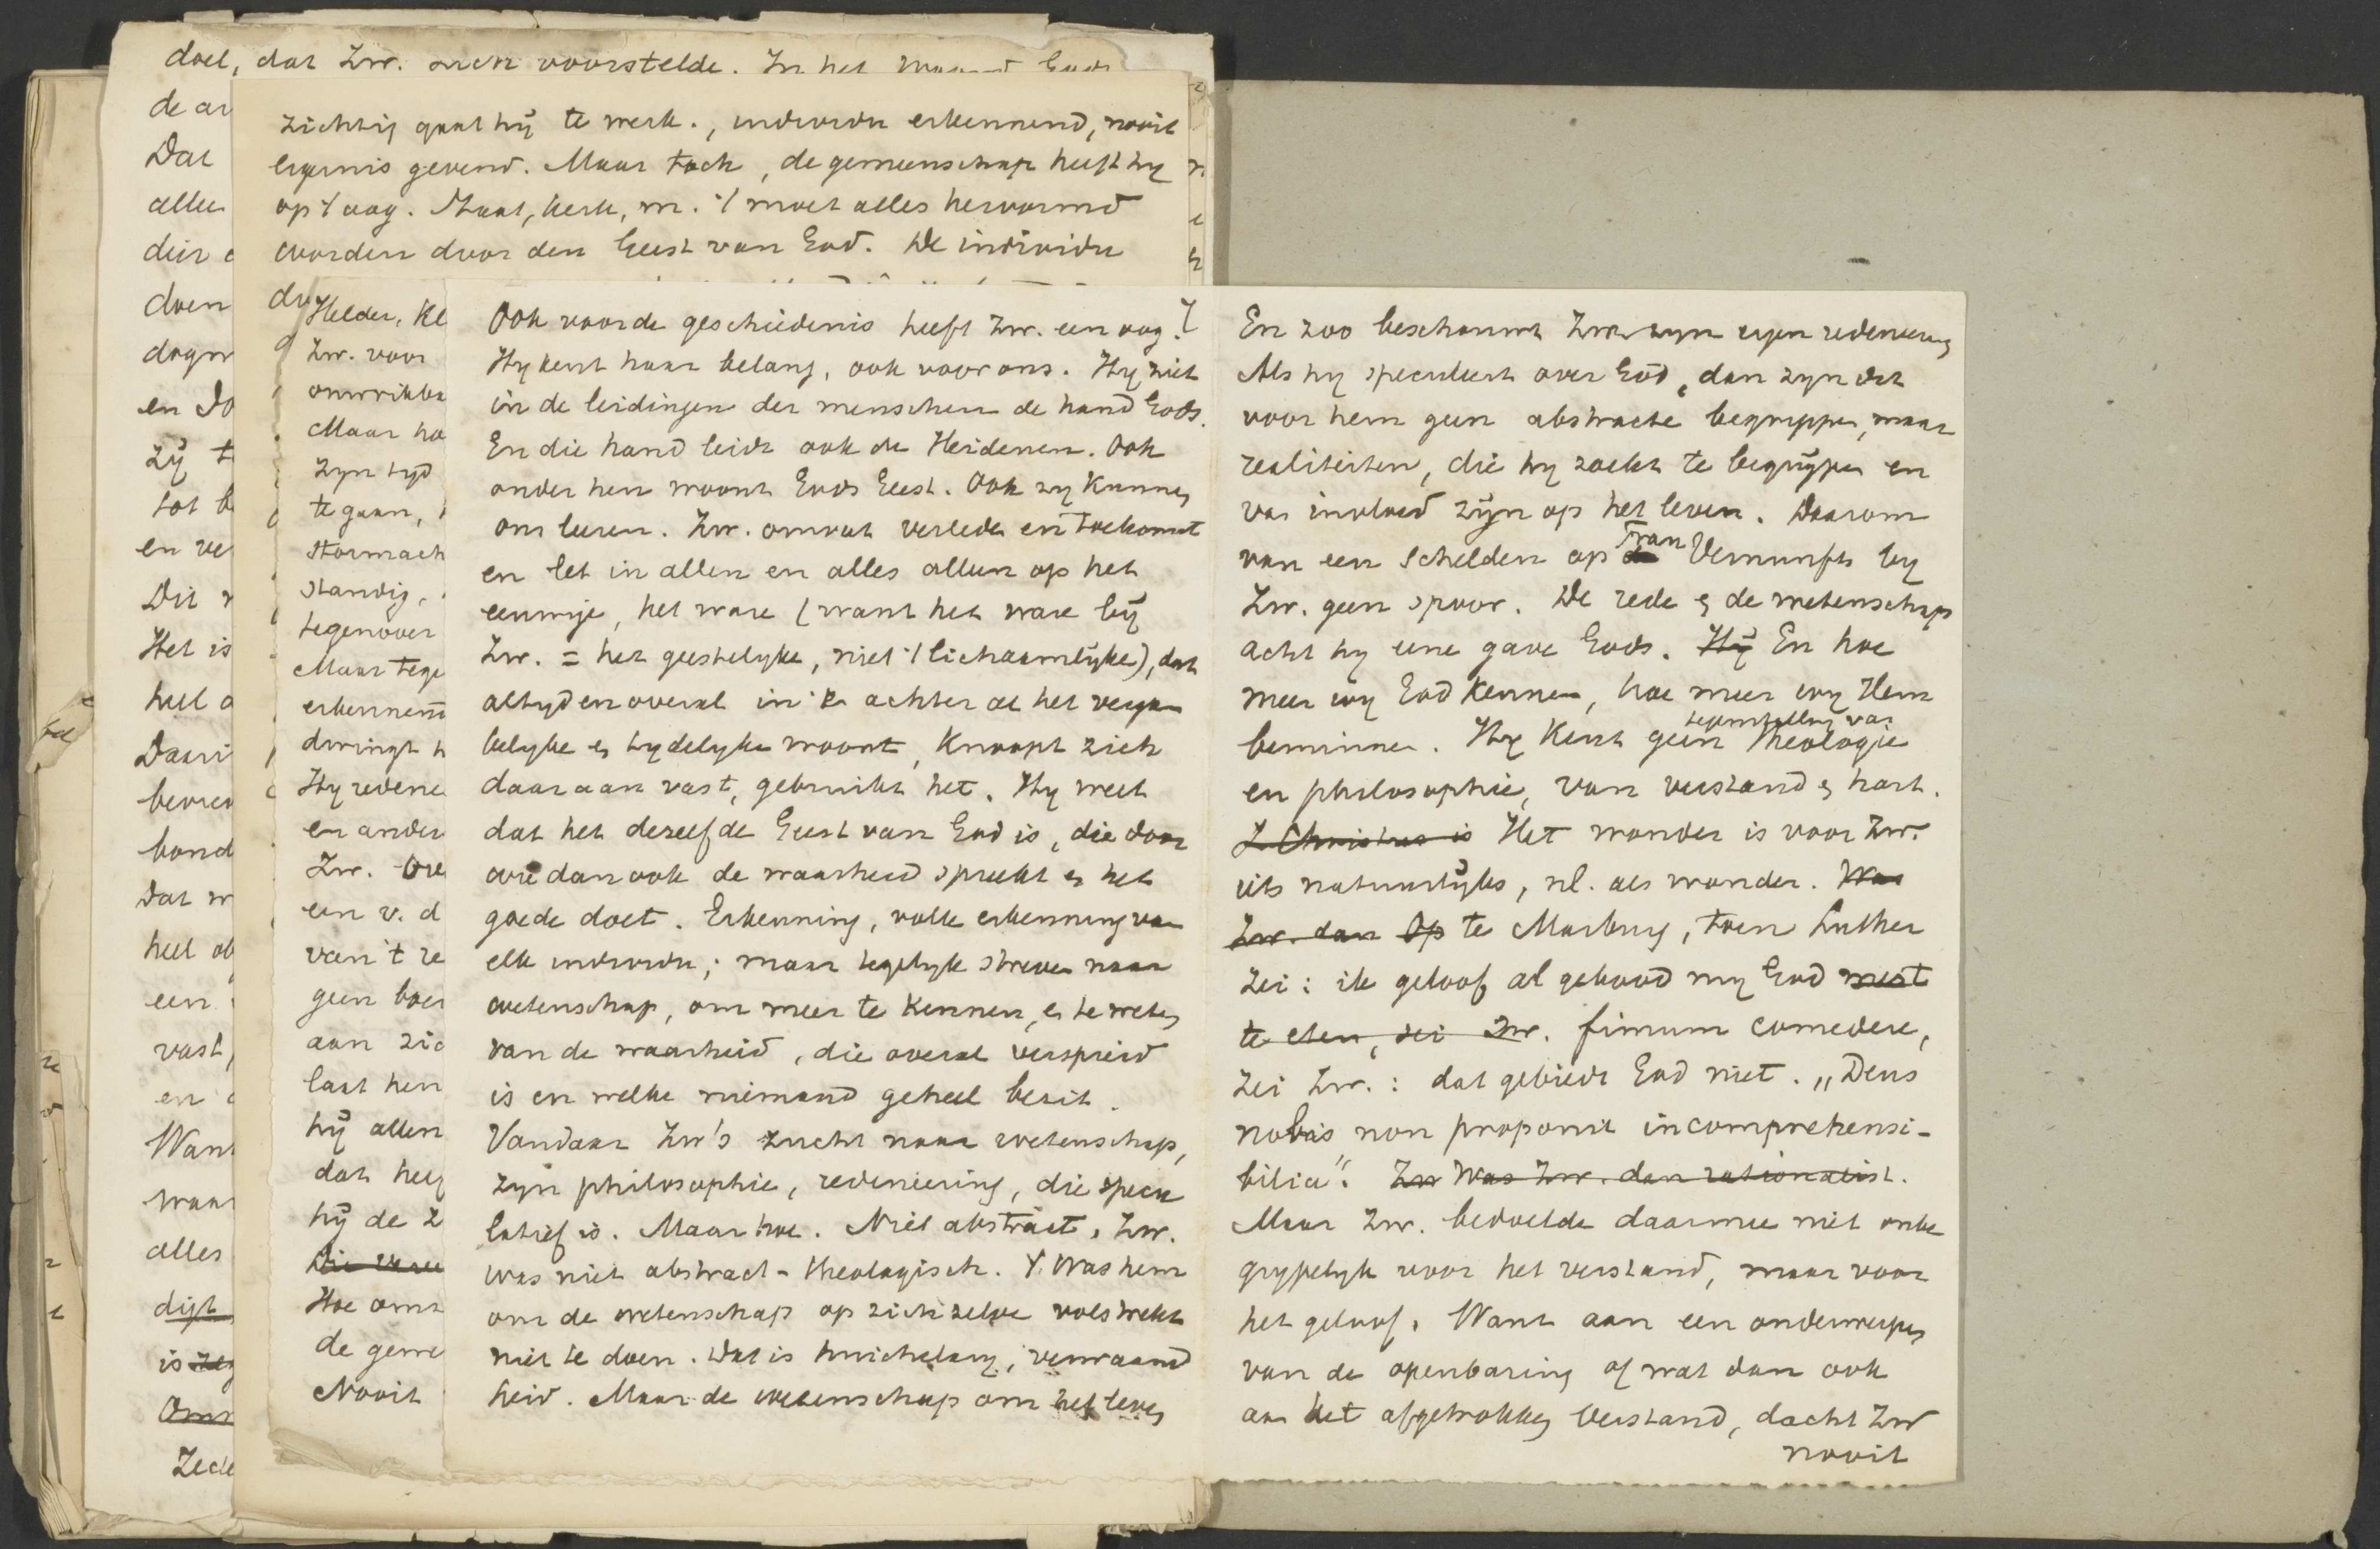 doel, dat Zw. zich voorstelde. In het
de ar
Dat
alle
dier
doen
dogm
en Do
zij t
tot b
en ve
Dit
Het is
heel a
Daari
bond
Dat w
heel ob
een
vast,
en
Want
waar
alles
digt
is
Zede
zichtig gaat hij te werk., individu erkennend, nooit
ergernis gevend. Maar toch, de gemeenschap heeft hy
op 't oog. Staat, kerk, m. 't moet alles hervormd
worden door den Geest van God. De individu
Helder, kl
Zw. voor
onwrikba
Maar ho
zyn tyd
te gaan,
stormach
standig,
tegenover
Maar tege
erkennen
dwingt h
Hy redene
en ander
Zw. Ove
een v. d
van 't re
geen boe
aan zic
laat hen
hij allen
dat hee
hij de z
Die
Hoe oms
de geme
Nooit
Ook voor de geschiedenis heeft Zw. een oog.
Hy kent haar belang, ook voor ons. Hy ziet
in de leidingen der menschen de hand Gods.
En die hand leidt ook de Heidenen. Ook
onder hen woont Gods Geest. Ook zy kunnen
ons leeren. Zw. omvat verleden en toekomst
en let in allen en alles alleen op het
eeuwige, het ware (want het ware bij
Zw. = het geestelyke, niet 't lichaamlijke), dat
altyd en overal in & achter al het verga-
kelyke & tydelyke woont, knoopt zich
daaraan vast, gebruikt het. Hy weet
dat het dezelfde Geest van God is, die door
wie dan ook de waarheid spreekt & het
goede doet. Erkenning, volle erkenning van
elk individu; maar tegelyk streven naar
wetenschap, om meer te kennen, & te weten
van de waarheid, die overal verspreid
is en welke niemand geheel bezit.
Vandaar Zw's zucht naar wetenschap,
zyn philosophie, redeneering, die specu
latief is. Maar hoe. Niet abstract. Zw.
was niet abstract-theologisch. 't Was hem
om de wetenschap op zichzelve volstrekt
niet te doen. Dat is huichelary, verwaand
heid. Maar de wetenschap om het leven
En zoo beschouwt Zw. zyn eigen redeneering
Als hy speculeert over God, dan zyn dit
voor hem geen abstracte begrippen, maar
realiteiten, die hy zoekt te begrijpen en
van invloed zijn op het leven. Daarom
van een schelden op Frau Vernunft by
Zw. geen spoor. De rede & de wetenschap
acht hy eene gave Gods. Hij En hoe
meer wy God kennen, hoe meer wy Hem
beminnen. Hy kent geen tegenstelling van Theologie
en philosophie, van verstand & hart.
Z Christus is Het wonder is voor Zw.
iets natuurlijks, nl. als wonder. Was
Zw. dan Op te Marburg, toen Luther
zei: ik geloof al gebood my God mest
te eten, zei Zw. fimum comedere,
zei Zw.: dat gebiedt God niet. „Deus
nobis non proponit incomprehensi-
bilia". Zw Was Zw. dan rationalist.
Maar Zw. bedoelde daarmee niet onbe
grypelyk voor het verstand, maar voor
het geloof. Want aan een onderwerpen
van de openbaring of wat dan ook
aan het afgetrokken Verstand, dacht Zw
nooit